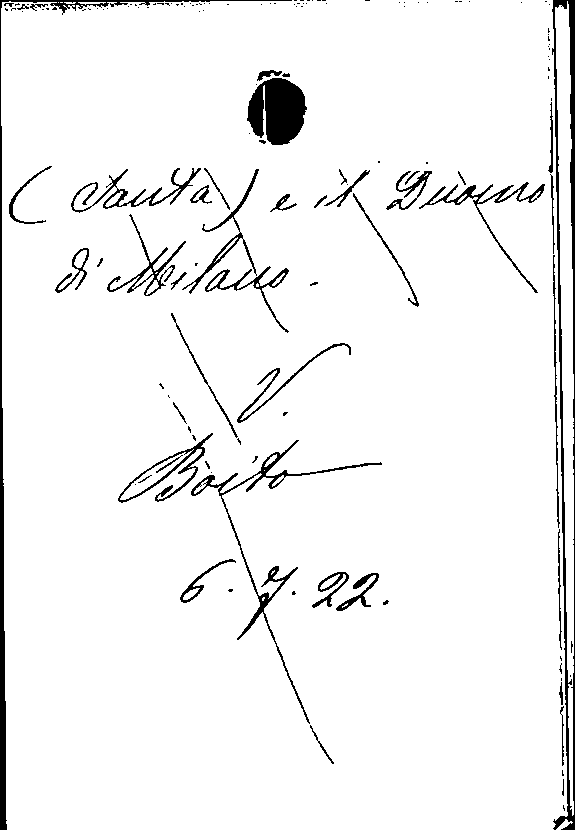 (Santa) e il Duomo
di Milano.
V.
Boito
6. 7. 22.